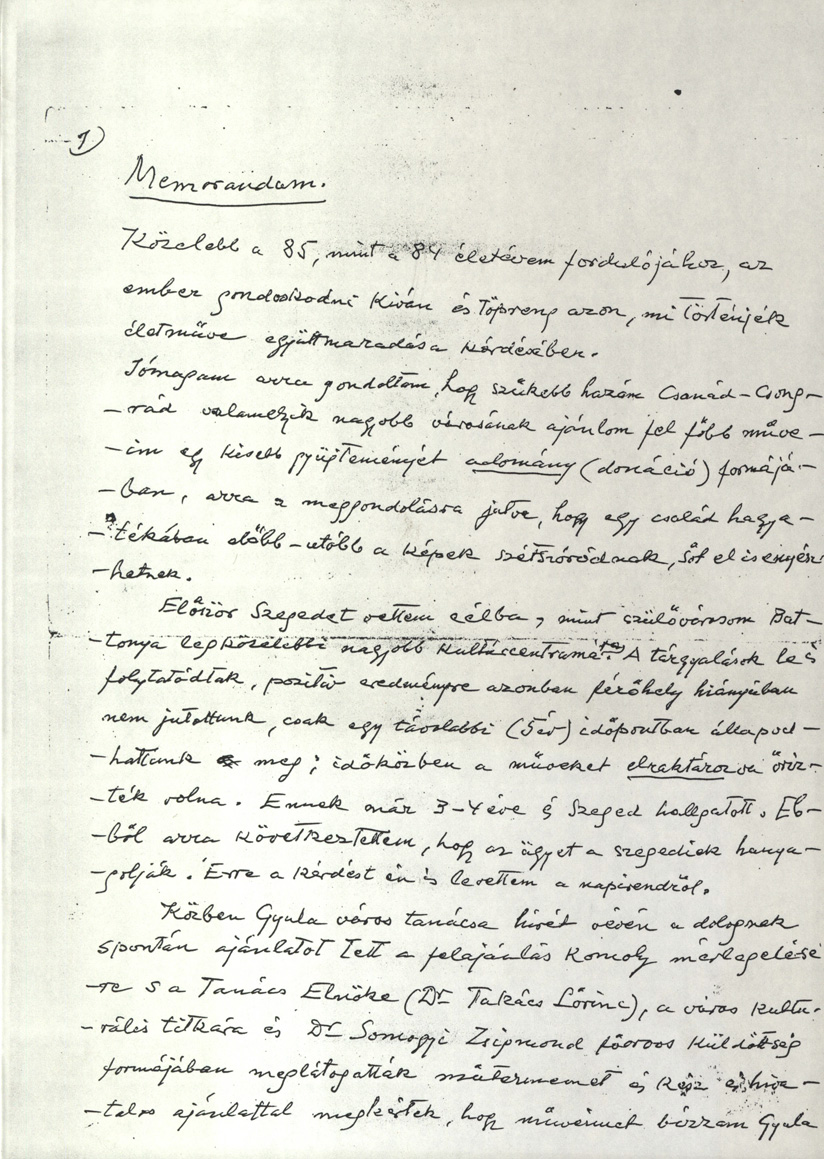 1)
Memorandum.
Közelebb a 85, mint a 84 életévem fordulójához, az
ember gondoskodni kíván és töpreng azon, mi történjék
életműve együttmaradása kérdésében.
Jómagam arra gondoltam, hogy szűkebb hazám Csanád-Csong-
-rád valamelyik nagyobb városának ajánlom fel főbb műve-
-im egy kisebb gyűjteményét adomány (donáció) formájá-
-ban, arra a meggondolásra jutva, hogy egy család hagya-
-tékában előbb-utóbb a képek szétszóródnak, sőt el is enyész
-hetnek.
Először Szegedet vettem célba, mint szülővárosom Bat-
-tonya legközelebbi nagyobb kultúrcentrumát. A tárgyalások le is
folytatódtak, pozitív eredményre azonban férőhely hiányában
nem jutottunk, csak egy távolabbi (5 év) időpontban állapod-
-hattunk meg; időközben a műveket elraktározva őriz-
-ték volna. Ennek már 3-4 éve és Szeged hallgatott. Eb-
-ből arra következtettem, hogy az ügyet a szegediek hanya-
-golják. Erre a kérdést én is levettem a napirendről.
Közben Gyula város tanácsa hírét vévén a dolognak
spontán ajánlatot tett a felajánlás komoly mérlegelésé
-re s a Tanács Elnöke (Dr Takács Lőrinc), a város kultu-
-rális titkára és Dr Somogyi Zsigmond főorvos küldöttség
formájában meglátogatták műtermemet és kész és hiva-
-talos ajánlattal megkértek, hogy műveimet bízzam Gyula